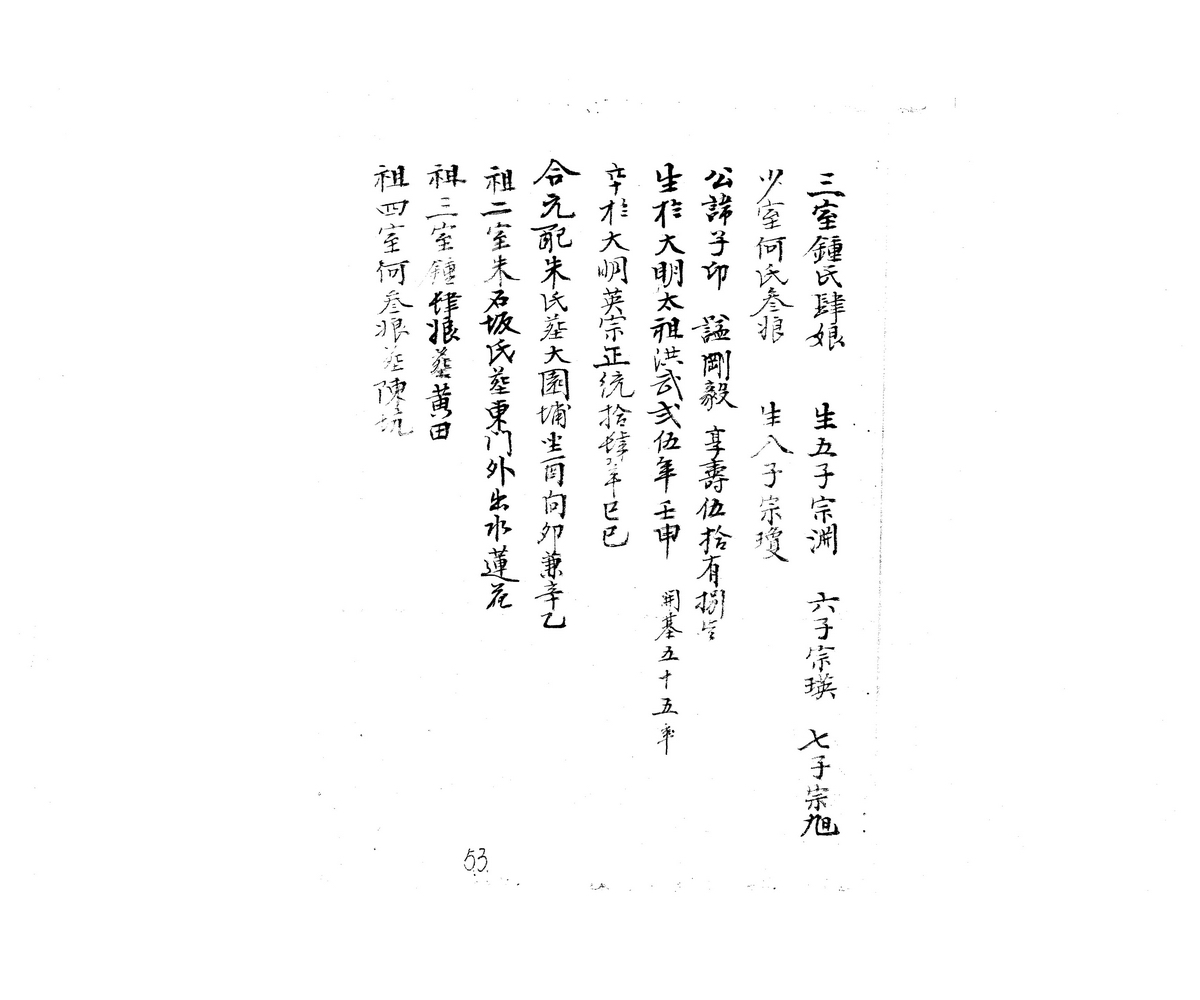 三室鍾氏肆娘 生五子宗渊 六子宗瑛 七子宗旭
少室何氏叁娘 生八子宗瓊
公諱子印 諡剛毅 享壽伍拾有捌
生於大明太祖洪武弍伍年壬申 開基五十五年
卒於大明英宗正统拾肆年己巳
合元配朱氏墓大園埔坐酉向卯兼辛乙
祖二室朱石坂氏墓東門外出水蓮花
祖三室鍾肆娘墓黄田
祖四室何叁娘墓陳坑
53